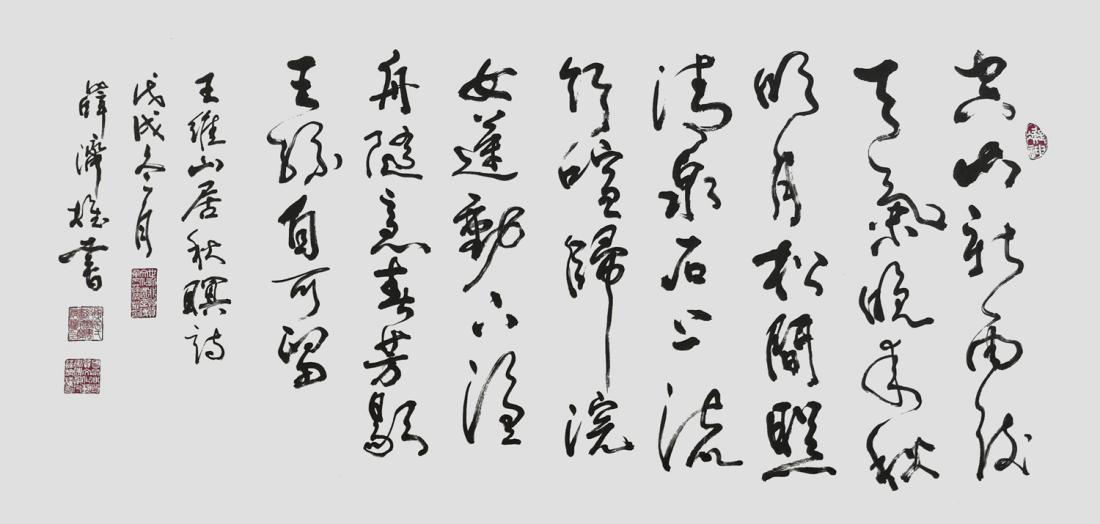 空山新雨後
天氣晚来秋
明月松間照
清泉石上流
竹喧歸浣
女蓮動下渔
舟隨意春芳歇
王孫自可留
王維山居秋暝詩
戊戌冬月
薛濟書